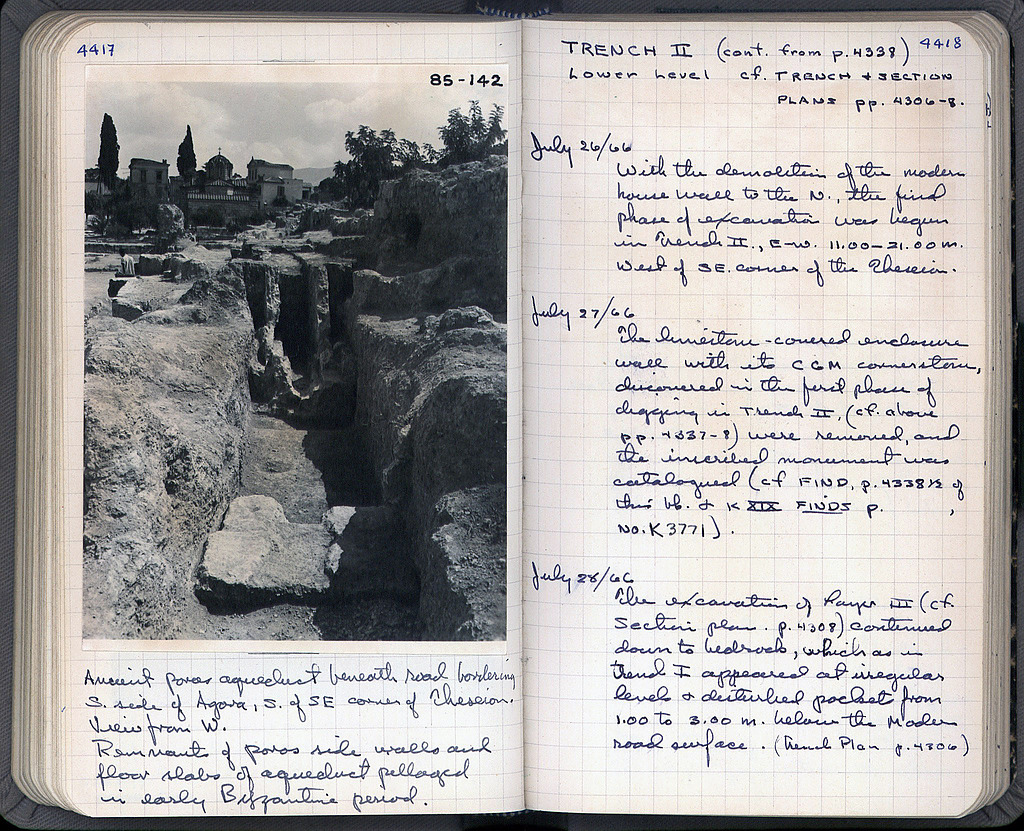 4417
85-142
Ancient poros aqueduct beneath road bordering
S. side of Agora, S. of SE corner of Theseion.
View from W.
Remnants of poros side walls and
floor slabs of aqueduct pillaged
in early Byzantine period.
4418
TRENCH II (cont. from p. 4338)
Lower Level cf. TRENCH & SECTION
PLANS pp. 4306-8.
July 26/66
With the demolition of the modern
house wall to the N., the final
phase of excavation was begun
in Trench II., E-W. 11.00-21.00 m.
West of SE. corner of the Theseion.
July 27/66
The limestone-covered enclosure
wall with its CGM cornerstone,
discovered in the first phase of
digging in Trench II, (cf. above
pp. 4337-8) were removed, and
the inscribed monument was
catalogued (cf FIND, p. 4338½ of
this nb. & K XIX FINDS p. ,
No. K 3771).
July 28/66
The excavation of Layer III (cf.
Section plan. p. 4308) continued
down to bedrock, which as in
Trench I appeared at irregular
levels & disturbed pockets from
1.00 to 3.00 m. below the Modern
road surface. (Trench Plan p. 4306)